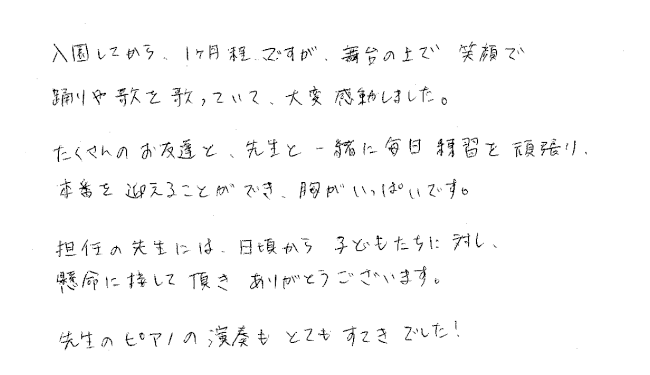 入園してから、1ヶ月程ですが、舞台の上で 笑顔で
踊りや歌を歌っていて、大変感動しました。
たくさんのお友達と、先生と一緒に毎日練習を頑張り、
本番を迎えることができ、胸がいっぱいです。
担任の先生には、日頃から子どもたちに対し、
懸命に接して頂きありがとうございます。
先生のピアノの演奏もとてもすてきでした!